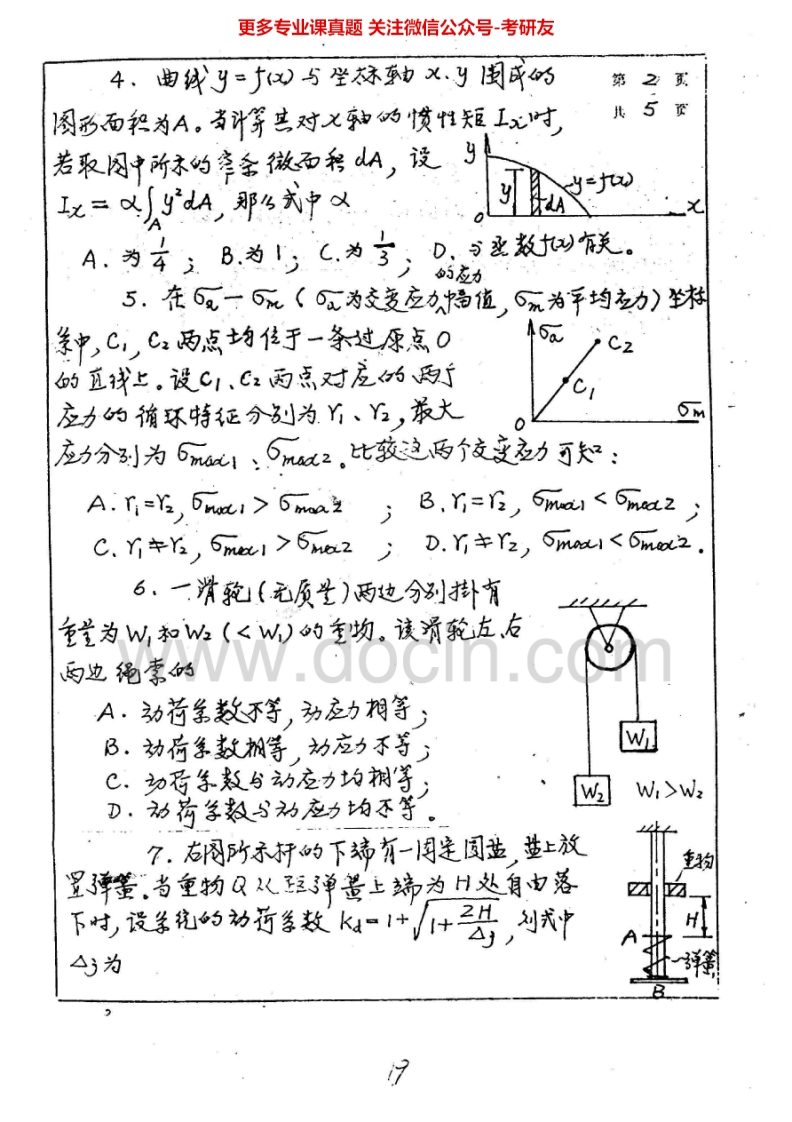 更多专业课真题 关注微信公众号-考研友
第 2 页
共 5 页
4、曲线y=f(x)与坐标轴x、y围成的
图形面积为A。当计算其对x轴的惯性矩Ix时,
若取图中所示的窄条微面积dA,设
Ix=α∫A y²dA,那么式中α
y
y
y=f(x)
dA
0
x
A.为1/4; B.为1; C.为1/3; D.与函数f(x)有关。
5、在σa—σm(σa为交变应力的应力幅值,σm为平均应力)坐标
系中,C1,C2两点均位于一条过原点O
的直线上。设C1、C2两点对应的两个
应力的循环特征分别为r1、r2,最大
应力分别为σmax1、σmax2。比较这两个交变应力可知:
σa
C2
C1
0
σm
A.r1=r2,σmax1>σmax2 ; B.r1=r2,σmax1<σmax2 ;
C.r1≠r2,σmax1>σmax2 ; D.r1≠r2,σmax1<σmax2.
6、一滑轮(无质量)两边分别掛有
重量为W1和W2(<W1)的重物。该滑轮左、右
两边绳索的
A.动荷系数不等,动应力相等;
B.动荷系数相等,动应力不等;
C.动荷系数与动应力均相等;
D.动荷系数与动应力均不等。
W1
W2
W1>W2
www.docin.com
7、右图所示杆的下端有一固定圆盘,盘上放
置弹簧。当重物Q从距弹簧上端为H处自由落
下时,设系统的动荷系数Kd=1+√(1+2H/Δj),则式中
Δj为
重物
H
A
弹簧
B
19